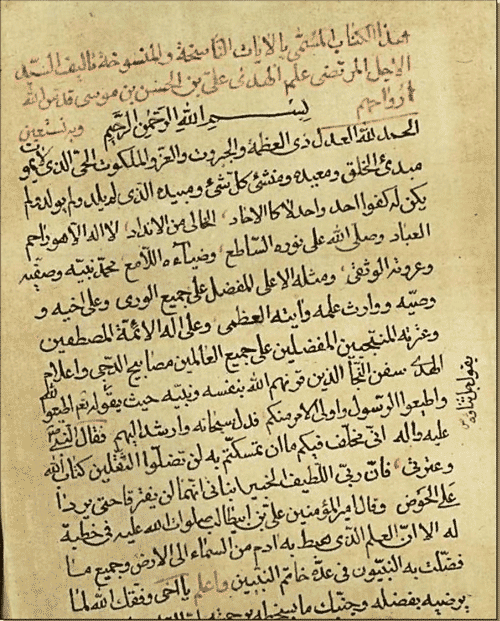 هذا الكتاب المسمى بالايات الناسخة والمنسوخة تاليف السيد
الاجل المرتضى علم الهدى علي بن الحسن بن موسى قدس الله
ارواحهم
بسم الله الرحمن الرحيم وبه نستعين
الحمد لله العدل ذي العظمة والجبروت والعز والملكوت الحي الذي لا يموت
مبدئ الخلق ومعيده ومنشئ كل شئ ومبيده الذي لم يلد ولم يولد ولم
يكن له كفوا احد واحد لا كالاحاد الخالي من الانداد لا اله الا هو راحم
العباد وصلى الله على نوره الساطع وضياءه اللامع محمد نبيه وصفيه
وعروته الوثقى ومثله الاعلى المفضل على جميع الورى وعلى اخيه و
وصيه ووارث علمه وايته العظمى وعلى اله الائمة المصطفين
وعترته المنتجبين المفضلين على جميع العالمين مصابيح الدجى واعلام
الهدى سفن النجا الذين قرنهم الله بنفسه ونبيه حيث يقول اطيعوا الله
واطيعوا الرسول واولي الامر منكم فدل سبحانه وارشد اليهم فقال النبي
عليه واله اني مخلف فيكم ما ان تمسكتم به لن تضلوا الثقلين كتاب الله
وعترتي فان ربي اللطيف الخبير انبأني انهما لن يفترقا حتى يردا
على الحوض وقال امير المؤمنين علي بن ابيطالب صلوات الله عليه في خطبة
له الا ان العلم الذي هبط به ادم من السماء الى الارض وجميع ما
فضلت به النبيون في عدة خاتم النبيين واعلم يا اخي وفقك الله لما
يرضيه بفضله وجنبك ما يسخطه برحمته